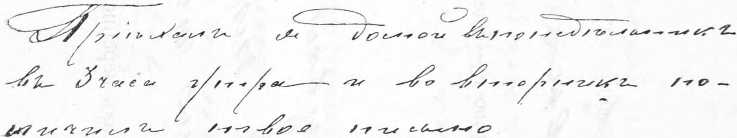 Пріѣхалъ я домой въ понедѣльникъ
въ 3 часа утра и во вторникъ по-
лучилъ твое письмо